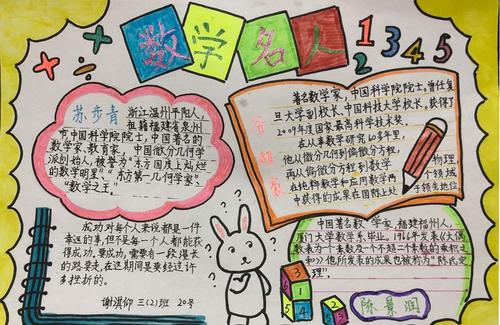 数学名人
+ × ÷ ÷
1 2 3 4 5
苏步青
浙江温州平阳人,
祖籍福建省泉州
市中国科学院院士,中国著名的
数学家、教育家,中国微分几何学
派创始人,被誉为“东方国度上灿烂
的数学明星”“东方第一几何学家”
“数学之王”。
谷超豪
著名数学家,中国科学院院士。曾任复
旦大学副校长、中国科技大学校长,获得了
2009年度国家最高科学技术奖。
在从事数学研究60多年里,
他从微分几何到偏微分方程,
再从偏微分方程到数学物理,
在纯粹数学和应用数学两个领域
中获得的成果在国际上处于领先地位。
成功对每个人来说都是一件
幸运的事,但不是每一个人都能获
得成功。要成功,需要有一段漫长
的路要走,在这期间是要经过许
多挫折的。
谢淇仰 三(2)班 20号
? ? ? ?
中国著名数学家,福建福州人。
厦门大学数学系毕业。1966年发表《大偶
数表为一个素数及不个超二个素数的乘积之
和》他所发表的成果也被称为“陈氏定
理”。
陈景润
3 1 4 5 2